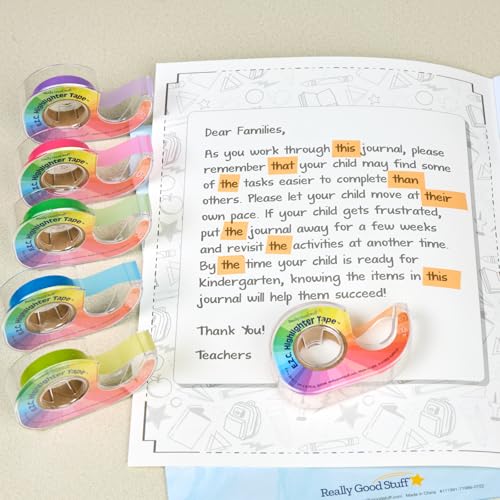 E.Z.C. Highlighter Tape™
E.Z.C. Highlighter Tape™
E.Z.C. Highlighter Tape™
E.Z.C. Highlighter Tape™
E.Z.C. Highlighter Tape™
Dear Families,
As you work through this journal, please
remember that your child may find some
of the tasks easier to complete than
others. Please let your child move at their
own pace. If your child gets frustrated,
put the journal away for a few weeks
and revisit the activities at another time.
By the time your child is ready for
Kindergarten, knowing the items in this
journal will help them succeed!
Thank You!
Teachers
E.Z.C. Highlighter Tape™
Really Good Stuff